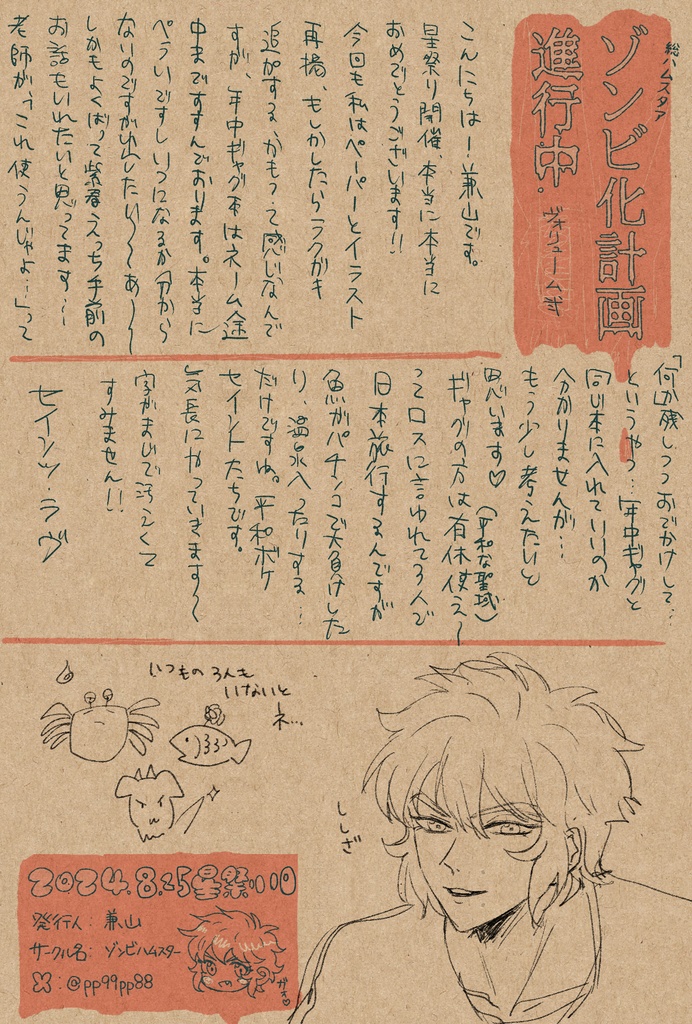 総ハムスタア
ゾンビ化計画
進行中.
ヴォリューム弐
こんにちはー!兼山です。
星祭り開催、本当に本当に
おめでとうございます!!
今回も私はペーパーとイラスト
再掲、もしかしたらラクガキ
追加する、かもって感じなんで
すが、年中ギャグ本はネーム途
中まですすんでおります。本当に
ペラいですしいつになるか分から
ないのですが出したい〜〜あ〜〜
しかもよくばって紫君えっち手前の
お話もいれたいと思ってます…!
老師が、「これ使うんじゃよ…」って
「何か残しつつおでかけして…
というやつ…!年中ギャグと
同じ本に入れていいのか
分かりませんが…
もう少し考えたいと
思います♡
(平和な聖域)
ギャグの方は有休使え〜
ってロスに言われて3人で
日本旅行するんですが
魚がパチンコで大負けした
り、温泉入ったりする…
だけですね。平和ボケ
セイントたちです。
気長にやっていきます〜
字がまじで汚えくて
すみません!!
セインツ・ラヴ
いつもの3人も
いないと
ネ…
ししざ
2024.8.25星祭
発行人:兼山
サークル名:ゾンビハムスター
X:@pp99pp88
ガオ♡